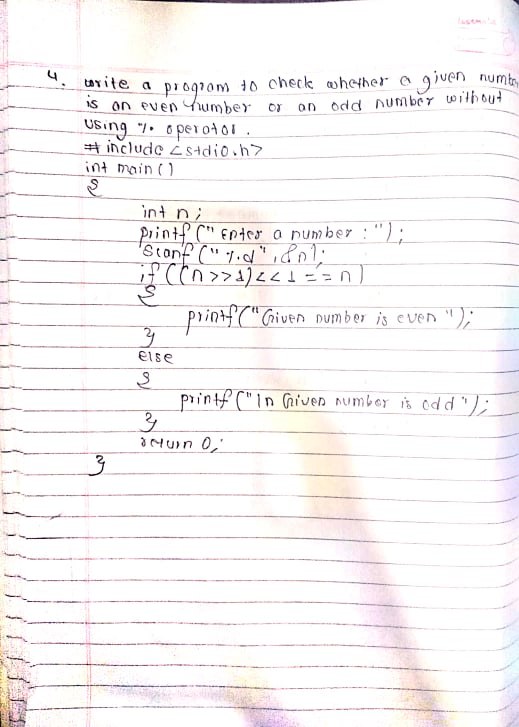 4. write a program to check whether a given numbe
is an even number or an odd number without
using % operator.
# include <stdio.h>
int main ()
{
int n;
printf (" Enter a number : ");
Scanf (" %d ", &n);
if ((n >>1)<< 1 == n)
{
printf (" Given number is even ");
}
Else
{
printf (" In Given number is odd ");
}
return 0;
}